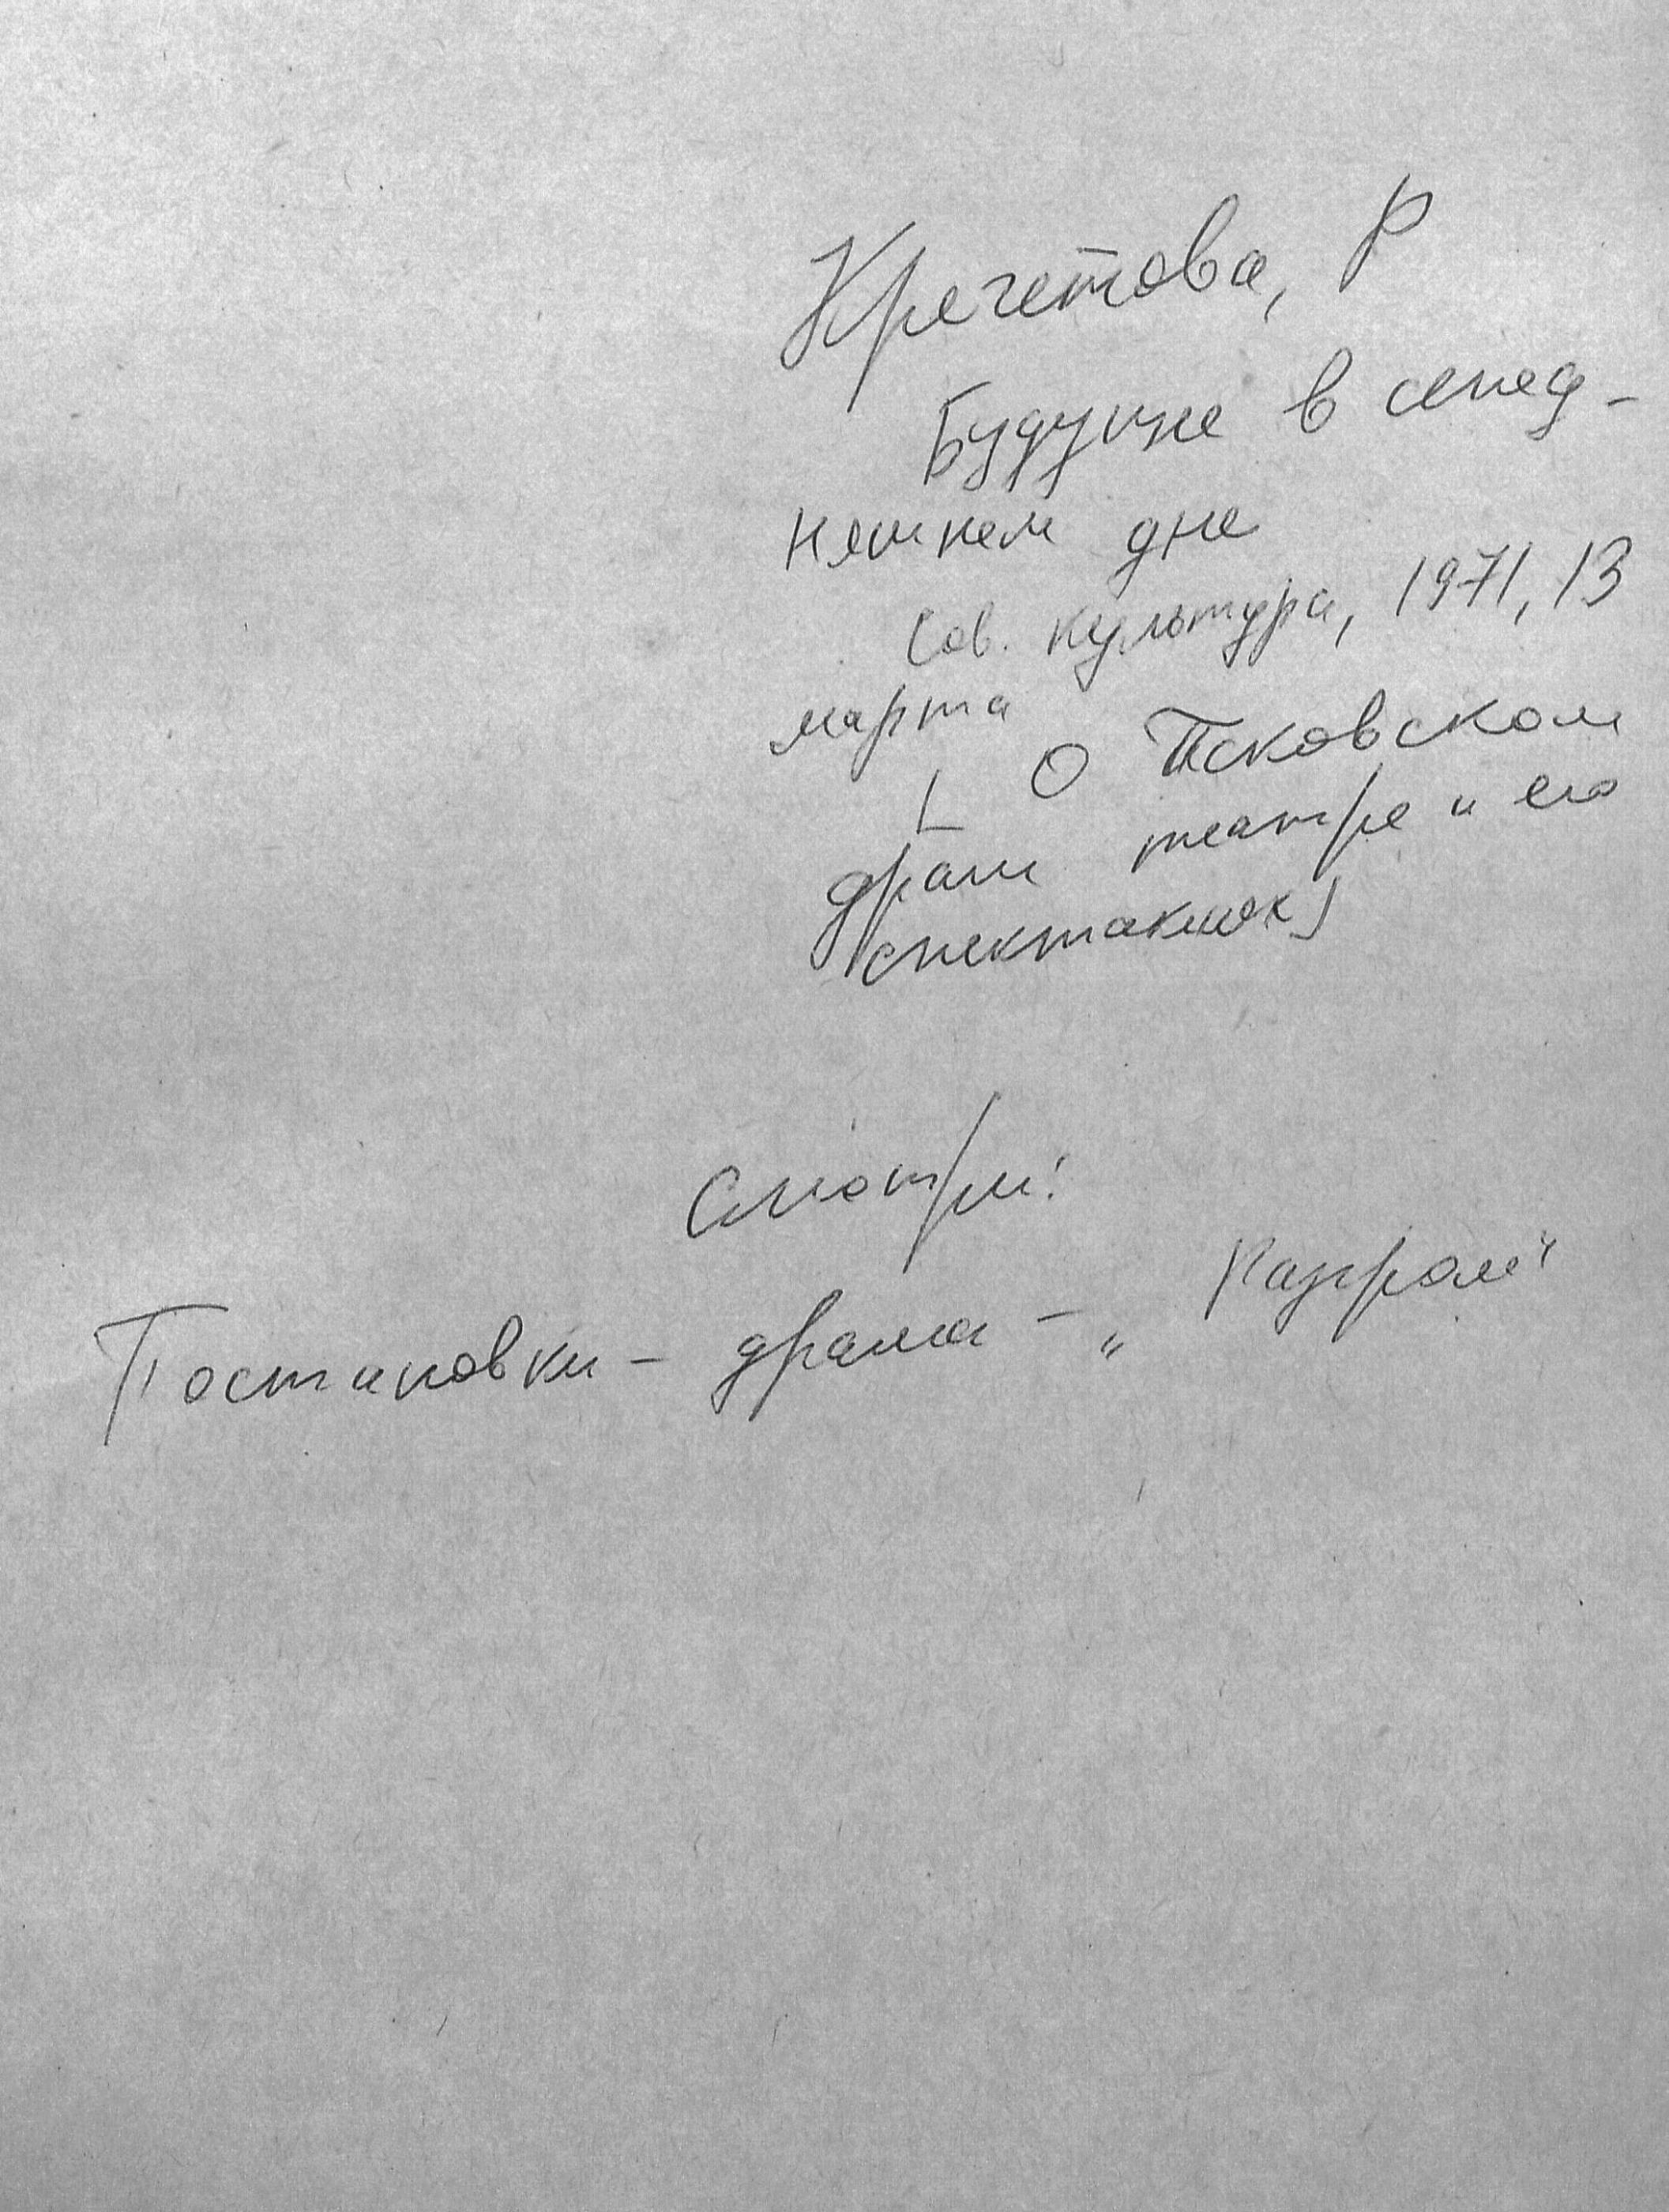 Кречетова, Р
Будущее в сегод-
няшнем дне
Сов. культура, 1971, 13
марта
[ О Псковском
драм театре и его
спектаклях]
Смотри:
Постановки - драма - „Разгром“